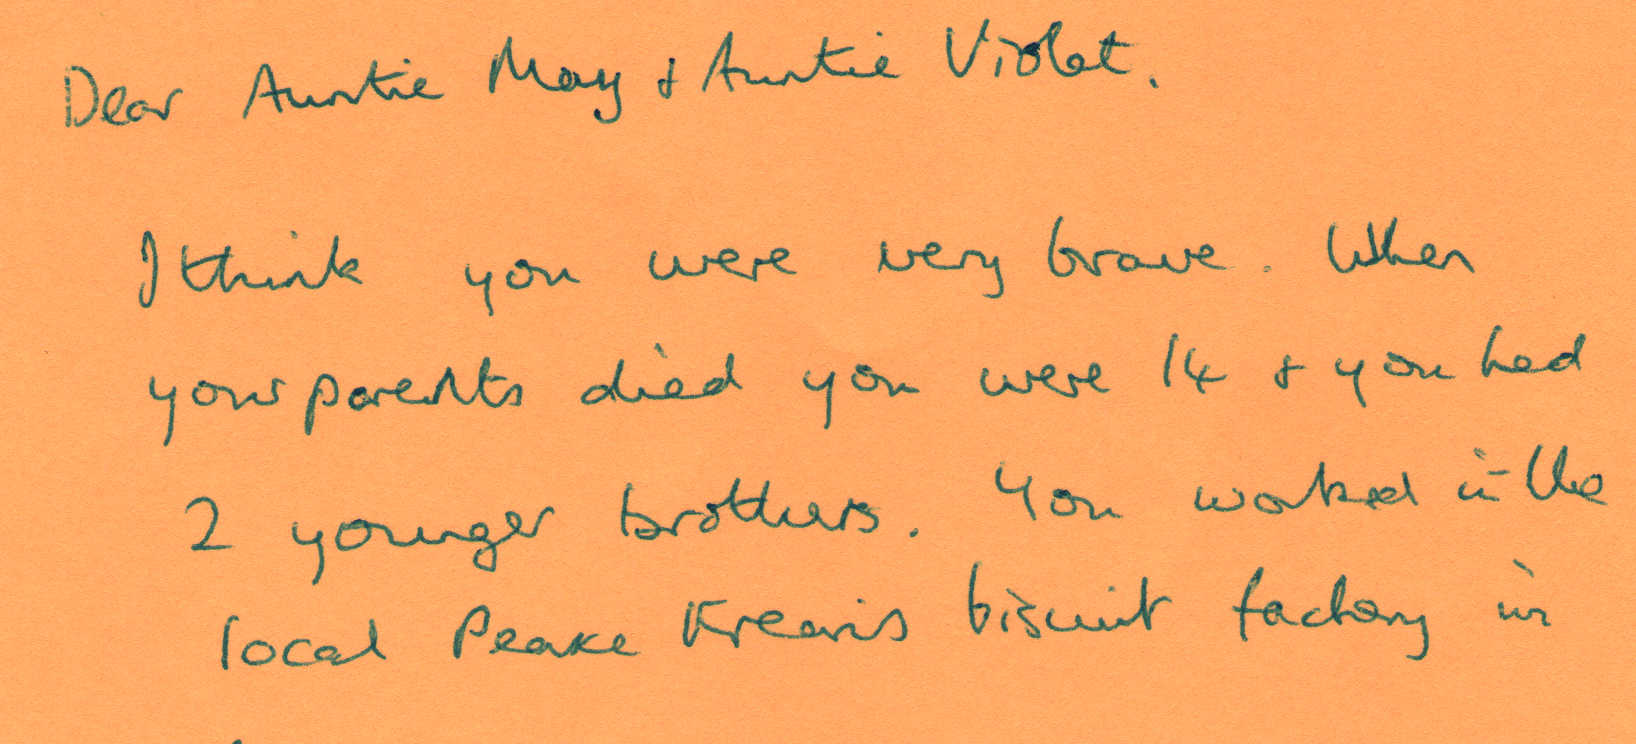 Dear Auntie May & Auntie Violet.
I think you were very brave. When
your parents died you were 14 & you had
2 younger brothers. You worked in the
local Peake Kreans biscuit factory in